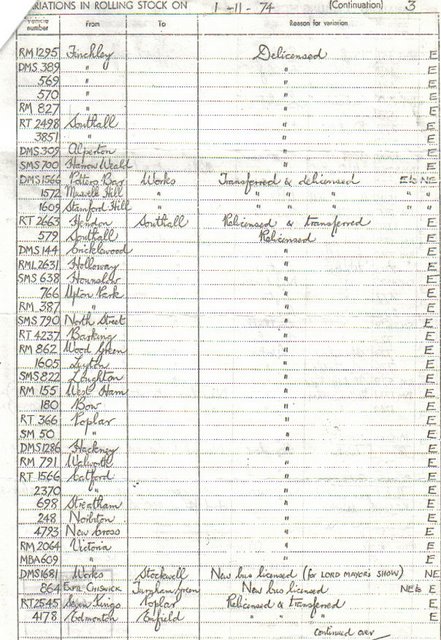 VARIATIONS IN ROLLING STOCK ON 1-11-74 (Continuation) 3
Vehicle number From To Reason for variation
RM 1295 Finchley Delicensed E
DMS 389 " " E
569 " " E
570 " " E
RM 827 " " E
RT 2498 Southall " E
3851 " " E
DMS 309 Alperton " E
SMS 700 Harrow Weald " E
DMS 1566 Potters Bar Works Transferred & delicensed E to NE
1572 Muswell Hill " " " " " "
1609 Stamford Hill " " " " " "
RT 2663 Hendon Southall Relicensed & transferred E
579 Southall Relicensed E
DMS 144 Cricklewood " E
RML 2631 Holloway " E
SMS 638 Hounslow " E
766 Upton Park " E
RM 387 " " E
SMS 790 North Street " E
RT 4237 Barking " E
RM 862 Wood Green " E
1605 Leyton " E
SMS 822 Loughton " E
RM 155 West Ham " E
180 Bow " E
RT 366 Poplar " E
SM 50 " " E
DMS 1286 Hackney " E
RM 791 Walworth " E
RT 1566 Catford " E
2370 " " E
698 Streatham " E
248 Norbiton " E
4793 New Cross " E
RM 2064 Victoria " E
MBA 609 " " E
DMS 1681 Works Stockwell New bus licensed (for LORD MAYOR'S SHOW) NE
864 Chiswick Turnham Green New bus licensed NE to E
RT 2545 Seven Kings Poplar Relicensed & transferred E
4178 Edmonton Enfield " " " E
continued over